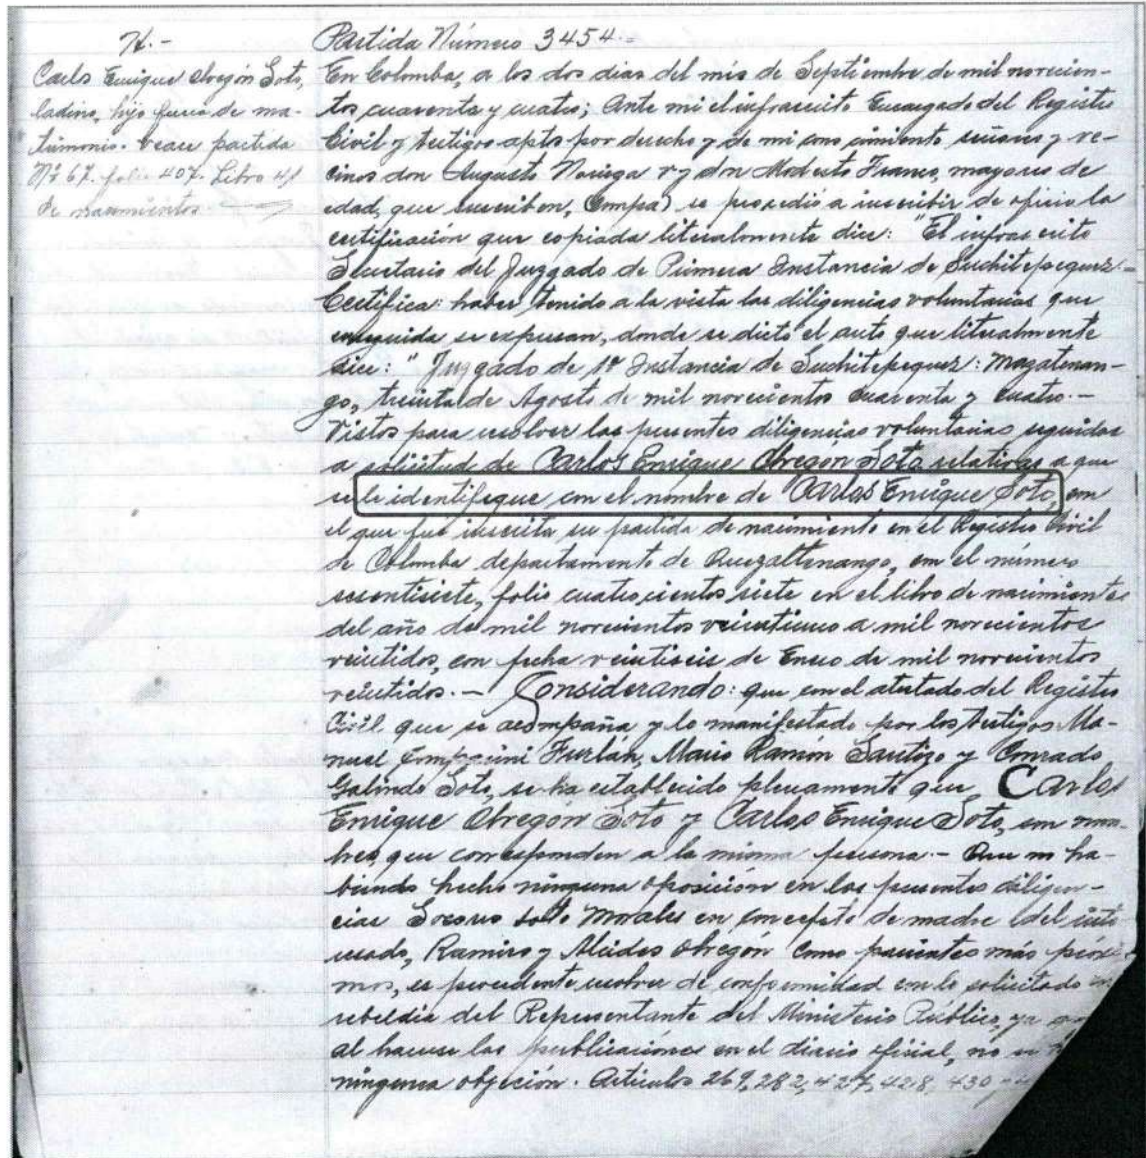 N.-
Carlos Enrique Obregón Soto,
ladino, hijo fuera de ma-
trimonio. vease partida
Nº 67. folio 407. Libro 41
de nacimientos.
Partida Número 3454.=
En Colomba, a los dos dias del mes de Septiembre de mil novecien-
tos cuarenta y cuatro; Ante mi el infrascrito Encargado del Registro
Civil y testigos aptos por derecho y de mi conocimiento señores y ve-
cinos don Augusto Noriega v. y don Modesto Franco, mayores de
edad, que suscriben, Compa) se procedió a inscribir de oficio la
certificación que copiada literalmente dice: "El infrascrito
Secretario del Juzgado de Primera Instancia de Suchitepequez.=
Certifica: haber tenido a la vista las diligencias voluntarias que
enseguida se expresan, donde se dictó el auto que literalmente
dice: "Juzgado de 1ª Instancia de Suchitepequez: Mazatenan-
go, treinta de Agosto de mil novecientos cuarenta y cuatro.-
Vistos para resolver las presentes diligencias voluntarias seguidas
a solicitud de Carlos Enrique Obregon Soto relativas a que
se le identifique con el nombre de Carlos Enrique Soto, con
el que fué inscrita su partida de nacimiento en el Registro Civil
de Colomba departamento de Quezaltenango, con el número
sesentisiete, folio cuatrocientos siete en el libro de nacimientos
del año de mil novecientos veintiuno a mil novecientos
veintidos, con fecha veintiseis de Enero de mil novecientos
veintidos.- Considerando: que con el atestado del Registro
Civil que se acompaña y lo manifestado por los testigos Ma-
nuel Furlan, Mario Ramón Santizo y Conrado
Galindo Soto, se ha establecido plenamente que, Carlos
Enrique Obregon Soto y Carlos Enrique Soto, son nom-
bres, que corresponden a la misma persona.- Que no ha-
biendo hecho ninguna oposición en las presentes diligen-
cias Socorro Soto Morales en concepto de madre del inte-
resado, Ramiro y Alcides Obregón como parientes más próxi-
mos, es procedente resolver de conformidad con lo solicitado en
rebeldia del Representante del Ministerio Público, ya
al hacerse las publicaciones en el diario oficial, no se
ninguna objeción. Articulos 269, 282, 427, 428, 430